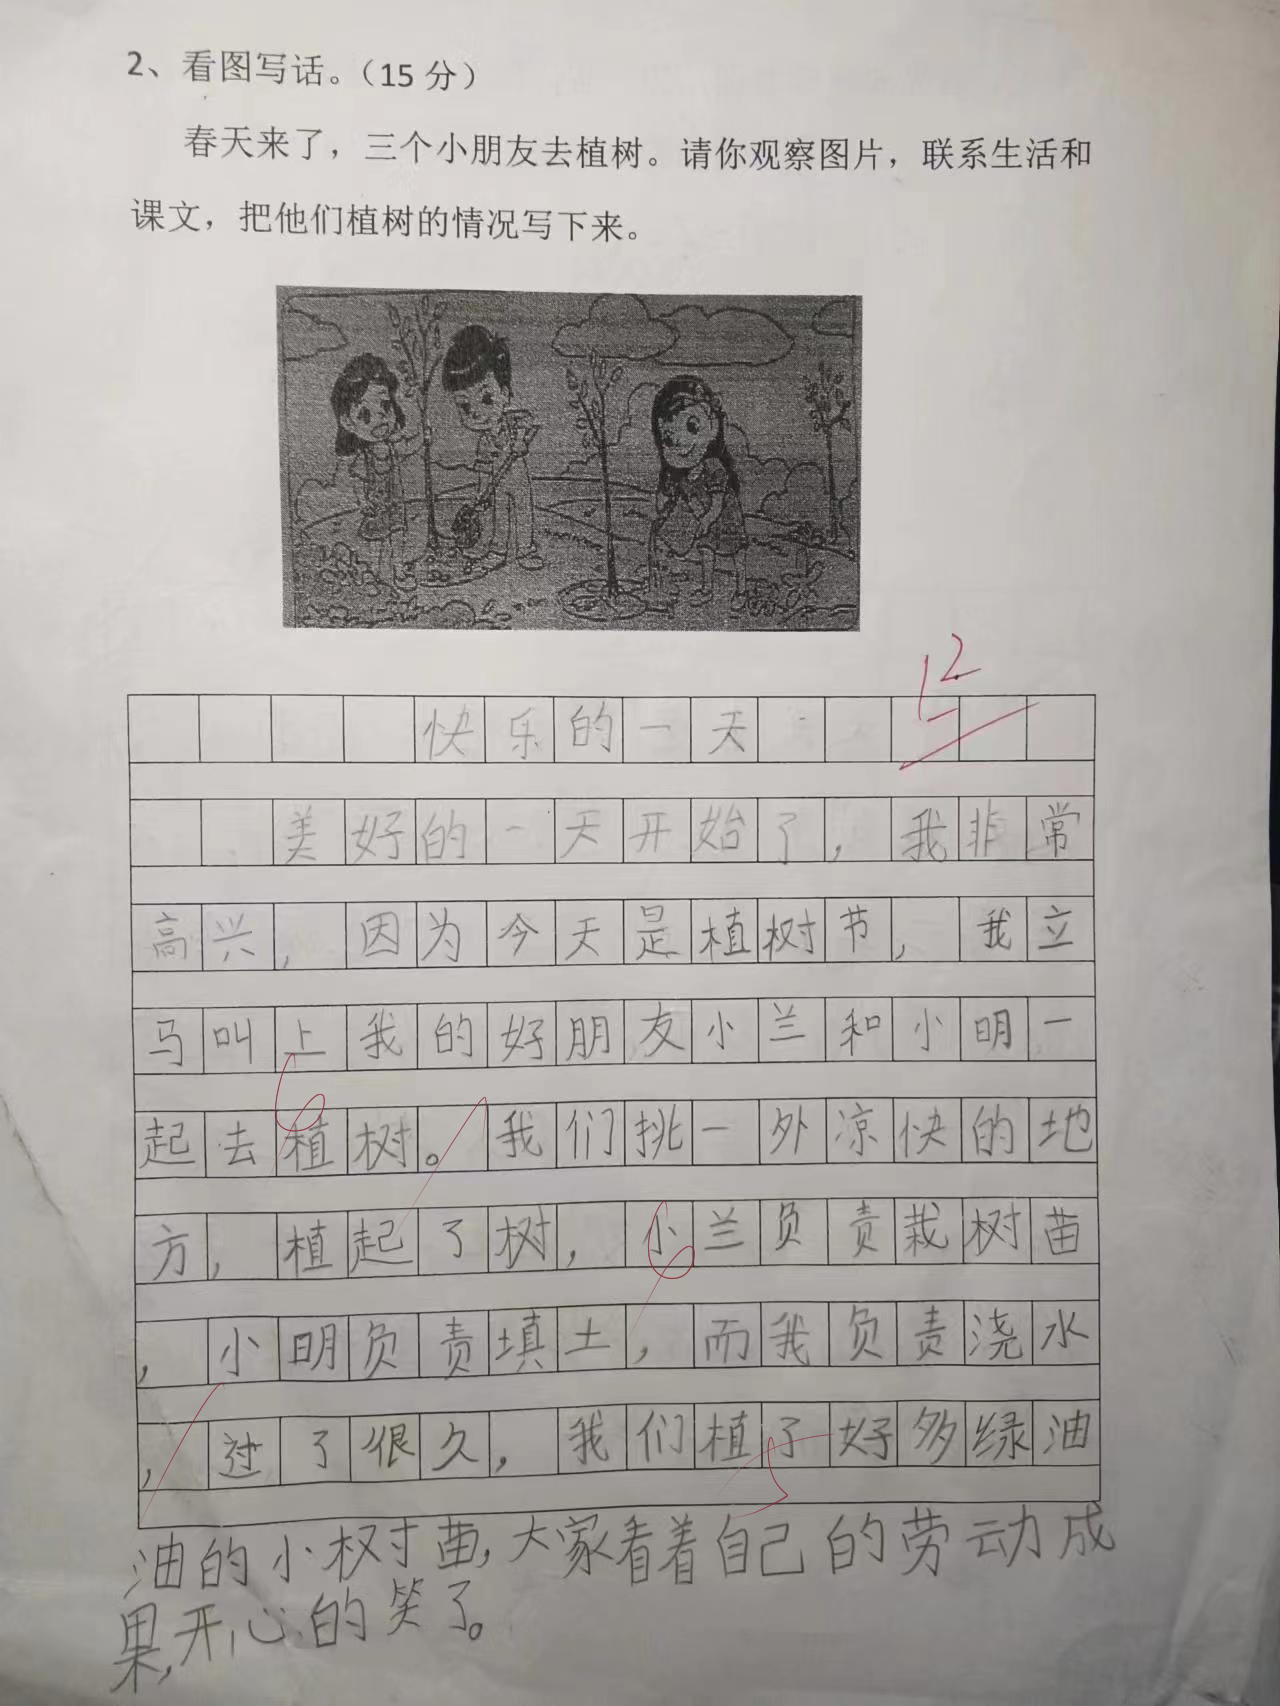 2、看图写话。（15 分）
春天来了，三个小朋友去植树。请你观察图片，联系生活和
课文，把他们植树的情况写下来。
12
快乐的一天
美好的一天开始了，我非常
高兴，因为今天是植树节，我立
马叫上我的好朋友小兰和小明一
起去植树。我们挑一外凉快的地
方，植起了树，小兰负责栽树苗
，小明负责填土，而我负责浇水
，过了很久，我们植了好多绿油
油的小树苗，大家看着自己的劳动成
果，开心的笑了。